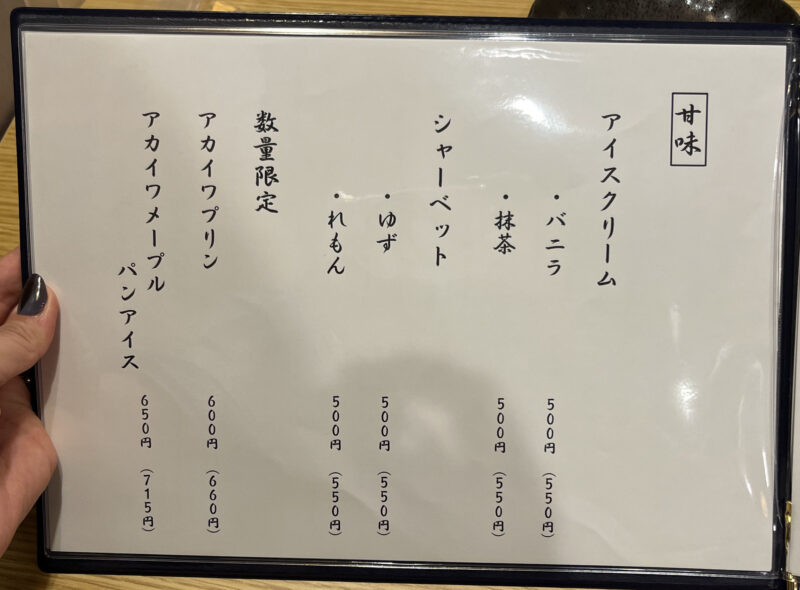 甘味
アイスクリーム
・バニラ 500円(550円)
・抹茶 500円(550円)
シャーベット
・ゆず 500円(550円)
・れもん 500円(550円)
数量限定
アカイワプリン 600円(660円)
アカイワメープル
パンアイス 650円(715円)